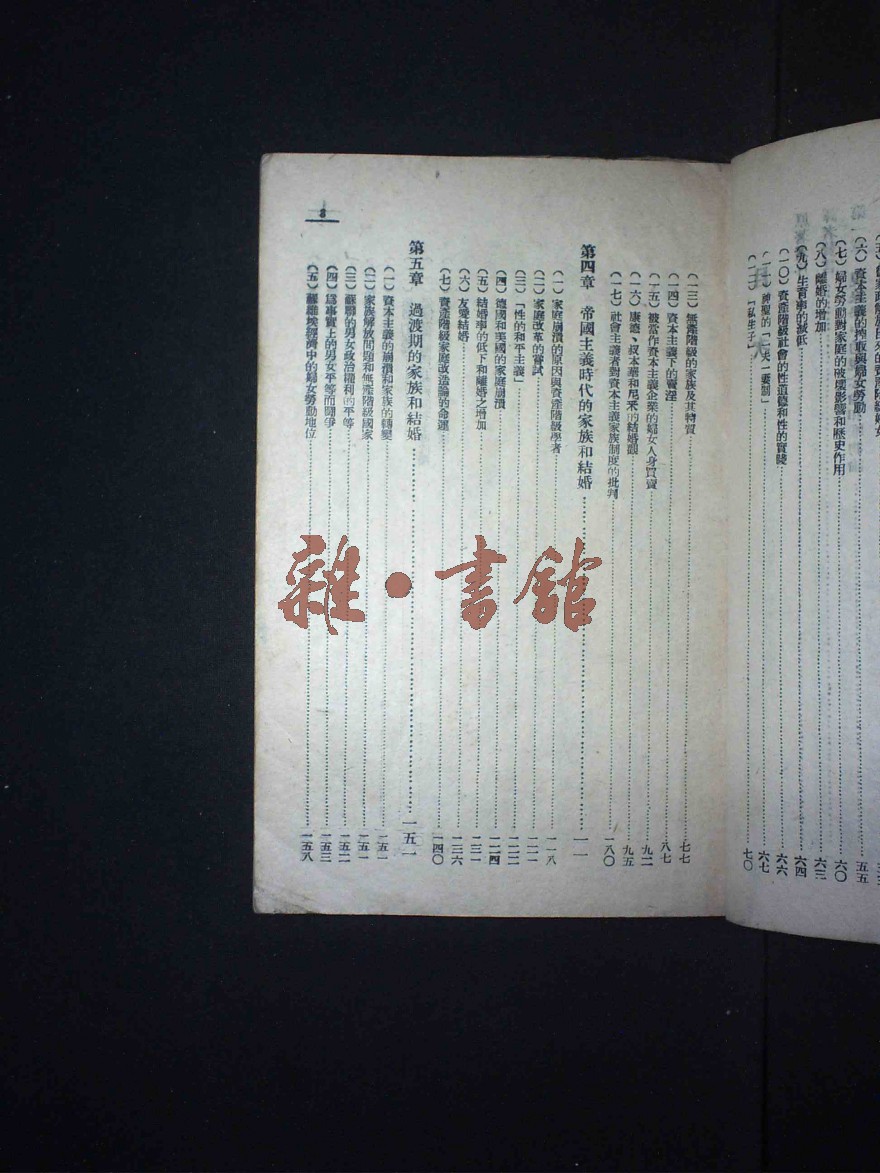 (六)資本主義的搾取與婦女勞動 五五
(七)婦女勞動對家庭的破壞影響和歷史作用……六〇
(八)離婚的增加……六三
(九)生育率的減低……六四
(一〇)資產階級社會的性道德和性的實踐……六六
(一一)神聖的「一夫一妻制」……六七
(一二)「私生子」……七〇
(一三)無產階級的家族及其物質……七七
(一四)資本主義下的賣淫……八七
(一五)被當作資本主義企業的婦女人身買賣……九二
(一六)康德、叔本華和尼采的結婚觀……九五
(一七)社會主義者對資本主義家族制度的批判……一八〇
第四章 帝國主義時代的家族和結婚……一一
(一)家庭崩潰的原因與資產階級學者……一一八
(二)家庭改革的嘗試……一二一
(三)「性的和平主義」……一二二
(四)德國和美國的家庭崩潰……一二四
(五)結婚率的低下和離婚之增加……一三一
(六)友愛結婚……一三六
(七)資產階級家庭改造論的命運……一四〇
第五章 過渡期的家族和結婚……一五一
(一)資本主義的崩潰和家族的轉變……一五一
(二)家族解放問題和無產階級國家……一五一
(三)蘇聯的男女政治權利的平等……一五二
(四)爲事實上的男女平等而鬪爭……一五三
(五)蘇維埃經濟中的婦女勞動地位……一五八
8
雜·書館